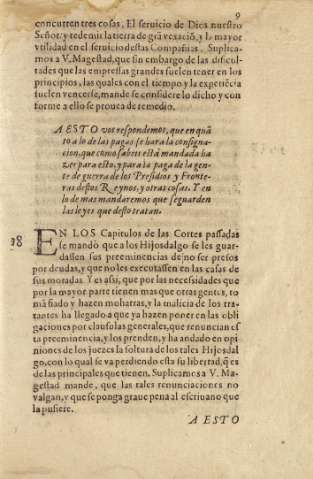 9
concurren tres cosas, El seruicio de Dios nuestro
Señor, y redemir la tierra de grã vexaciõ, y la mayor
vtilidad en el seruicio destas Compañias, Suplica-
mos a V. Magestad, que sin embargo de las dificul-
tades que las empressas grandes suelen tener en los
principios, las quales con el tiempo y la experiẽcia
suelen vencerse, mande se considere lo dicho y con-
forme a ello se prouea de remedio.
A ESTO vos respondemos, que en quã
to a lo de las pagas se hara la consigna-
cion, que como sabeis està mandada ha
zer para esto, y para la paga de la gen-
te de guerra de los Presidios y Fronte-
ras destos Reynos, y otras cosas. Y en
lo de mas mandaremos que se guarden
las leyes que desto tratan.
98
EN LOS Capitulos de las Cortes passadas
se mandò que a los Hijosdalgo se les guar-
dassen sus preeminencias de no ser presos
por deudas, y que no les executassen en las casas de
sus moradas. Y es assi, que por las necessidades que
por la mayor parte tienen mas que otras gentes, to
mã fiado y hazen mohatras, y la malicia de los tra-
tantes ha llegado a que ya hazen poner en las obli
gaciones por clausulas generales, que renuncian es
ta preeminencia, y los prenden, y ha andado en opi-
niones de los juezes la soltura de los tales Hijosdal
go, con lo qual se va perdiendo esta su libertad, q̃ es
de las principales que tienen. Suplicamos a V. Ma-
gestad mande, que las tales renunciaciones no
valgan, y que se ponga graue pena al escriuano que
la pusiere.
A ESTO